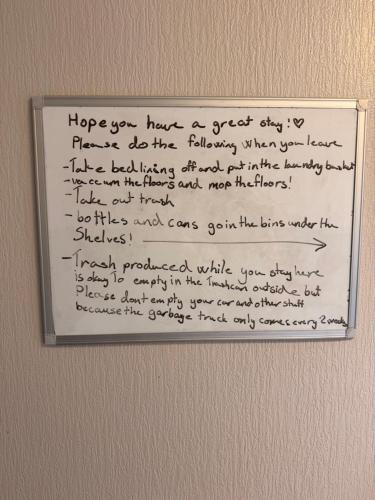 Hope you have a great stay!♡
Please do the following when you leave
- Take bedlining off and put in the laundry basket
- vaccum the floors and mop the floors!
- Take out trash
- bottles and cans go in the bins under the
Shelves! →
- Trash produced while you stay here
is okay To empty in the Trashcan outside but
Please dont empty your car and other stuff
because the garbage truck only comes every 2 weeks